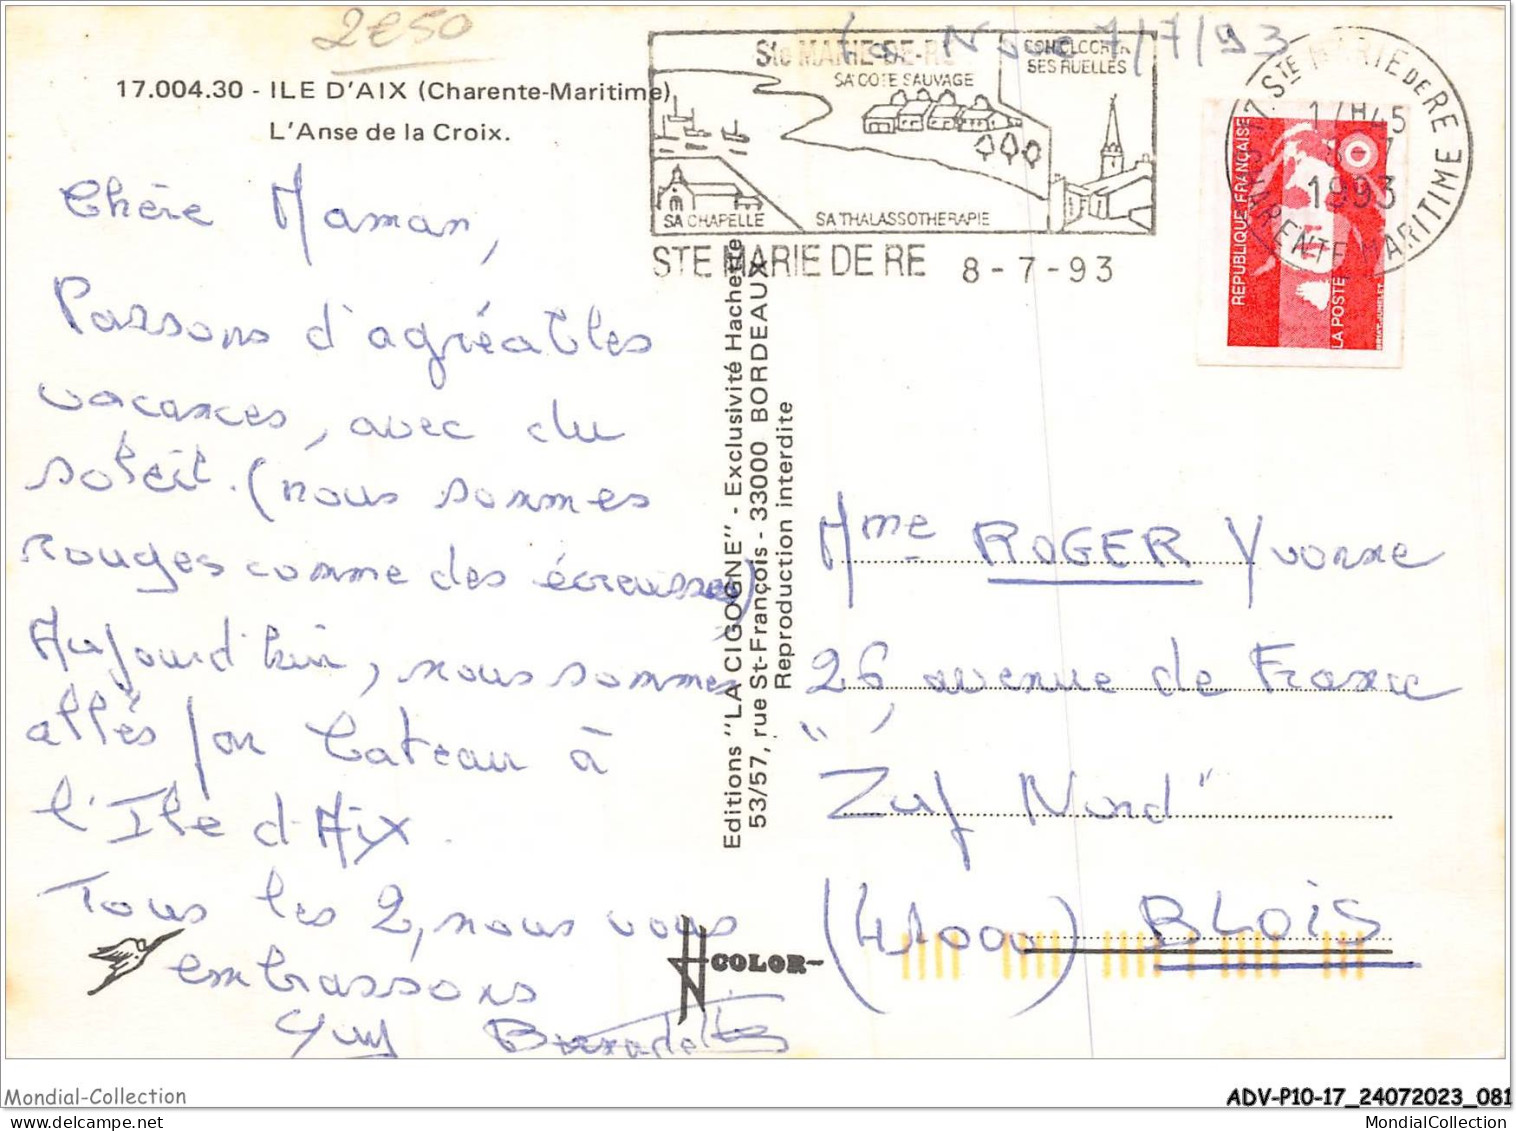 2€50
La Noue 7/7/93
17.004.30 - ILE D'AIX (Charente-Maritime)
L'Anse de la Croix.
Ste MARIE-DE-RE
SA COTE SAUVAGE
SES RUELLES
SA CHAPELLE
SA THALASSOTHERAPIE
STE MARIE DE RE 8-7-93
17 STE MARIE DE RE
17H45
8-7
1993
CHARENTE MARITIME
REPUBLIQUE FRANÇAISE
LA POSTE
Chère Maman,
Passons d'agréables
vacances, avec du
soleil. (nous sommes
rouges comme des écrevisses)
Aujourd'hui, nous sommes
allés par bateau à
l'Ile d'Aix.
Tous les 2, nous vous
embrassons
Guy Bernadette
Editions "LA CIGOGNE" - Exclusivité Hachette
53/57, rue St-François - 33000 BORDEAUX
Reproduction interdite
COLOR
Mme ROGER Yvonne
26, avenue de France
"Zup Nord"
(41000) BLOIS
Mondial-Collection
ADV-P10-17_24072023_081
MondialCollection